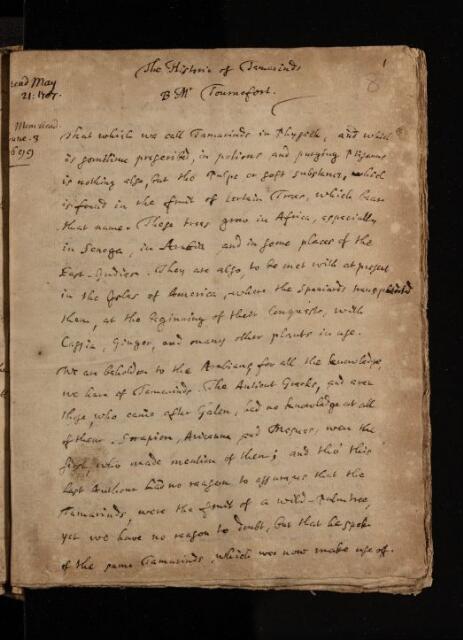 The Historie of Tamarinds
By Mr Tournefort.
1
8
read May
21: 1707.
Mem. Acad.
1699
That which we call Tamarinds in Physick, and which
is somtime prescribed, in potions and purging Ptisanns
is nothing else, but the Pulpe or soft substance, which
is found in the fruit of certain Trees, which bear
that name. These trees grow in Africa, especially
in Senega, in Arabia and in some places of the
East-Indies. They are also, to be met with at present
in the Isles of America, where the Spaniards transplanted
them, at the beginning of their Conquests, with
Cassia, Ginger, and many other plants in use.
We are beholden to the Arabians for all the knowledge,
we have of Tamarinds. The Antient Greeks, and even
those, who came after Galen, had no knowledge at all
of them. Serapion, Avicenna and Mesues, were the
first who made mention of them; and tho' this
last Authour had no reason to assure us that the
Tamarinds, were the fruit of a wild-Palmtree,
yet we have no reason to doubt, but that he spok
of the same Tamarinds, which we now make use of.